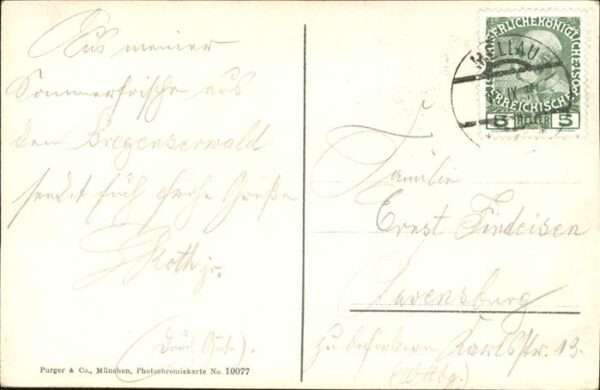 Aus meiner
Sommerfrische aus
dem Bregenzerwald
sendet frohe Grüße
Roth jr.
Purger & Co., München, Photochromiekarte No. 10077
KAISERLICHE KÖNIGLICHE ÖSTERREICHISCHE
5 5
MELLAU
Familie
Ernst Findeisen
Ravensburg
Karlstr. 13
(Wttbg.)